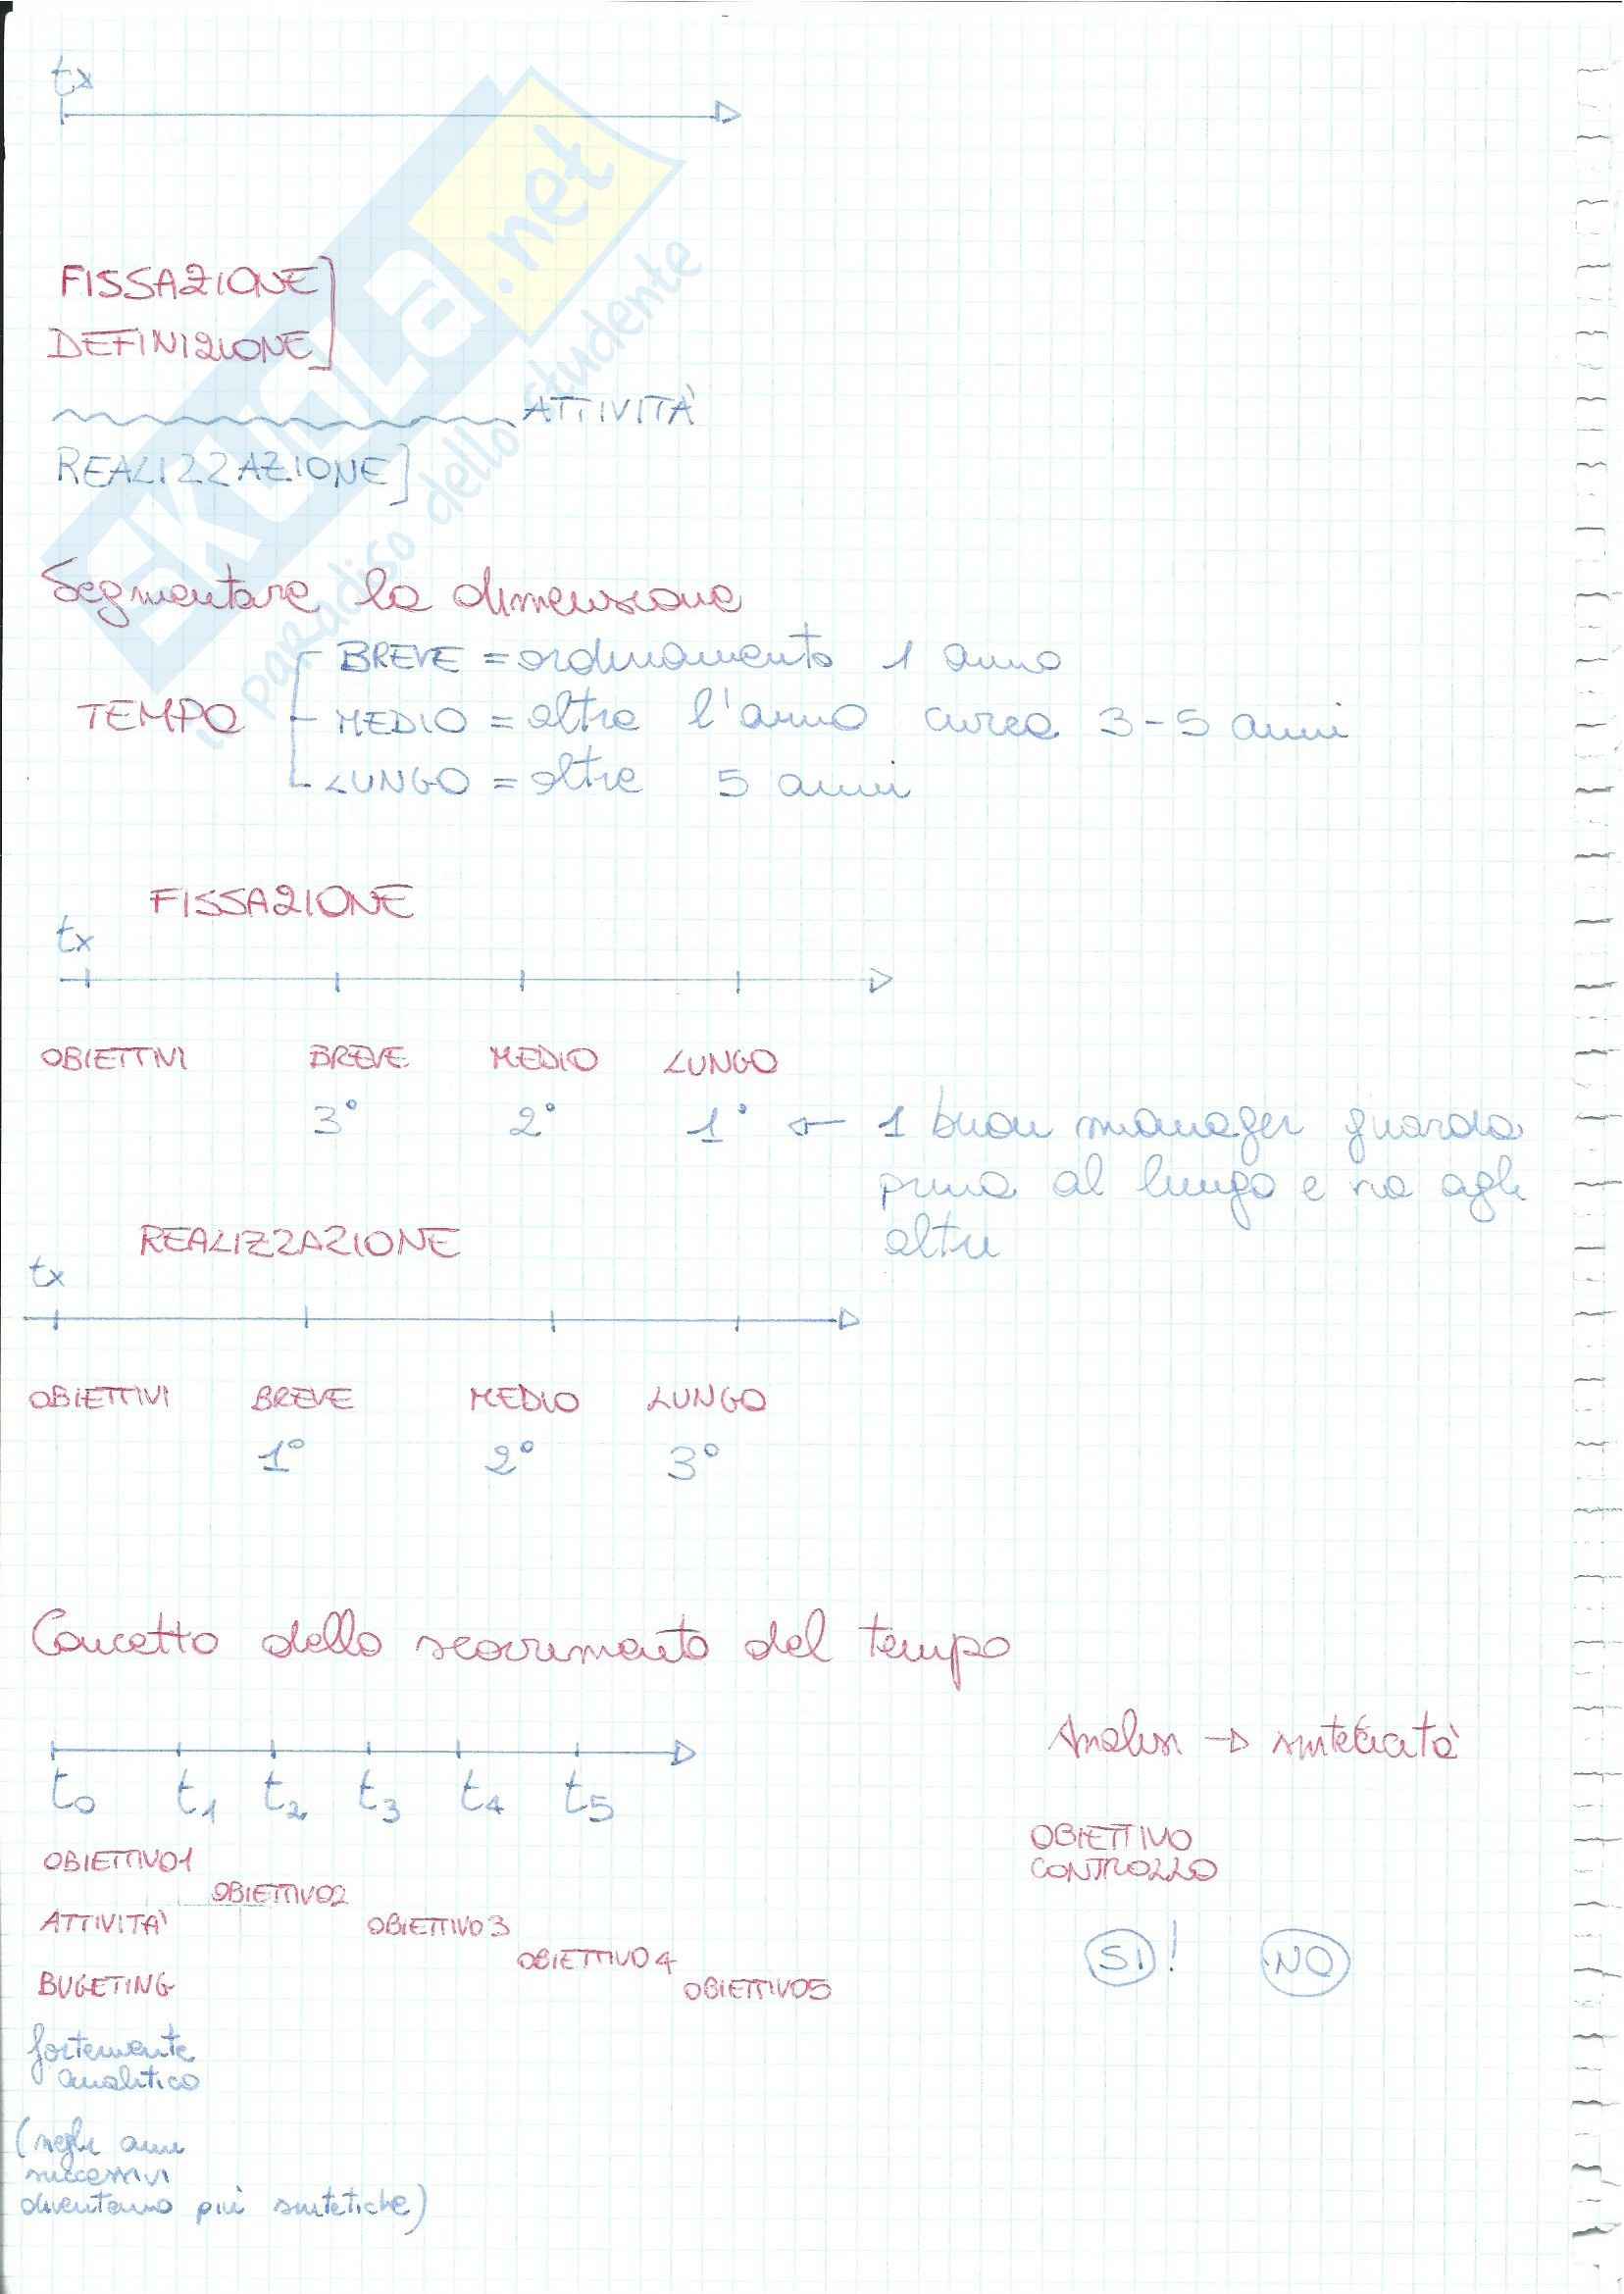 tx
FISSAZIONE]
DEFINIZIONE]
ATTIVITÀ
REALIZZAZIONE]
SKUOLA.net
il paradiso dello studente
Segmentare la dimensione
BREVE = ordinamento 1 anno
TEMPO
MEDIO = oltre l'anno circa 3-5 anni
LUNGO = oltre 5 anni
FISSAZIONE
tx
OBIETTIVI BREVE MEDIO LUNGO
3° 2° 1° 1 buon manager guarda
prima al lungo e no agli
altri
REALIZZAZIONE
tx
OBIETTIVI BREVE MEDIO LUNGO
1° 2° 3°
Concetto dello scorrimento del tempo
Analisi → sinteticità
t0 t1 t2 t3 t4 t5
OBIETTIVO
CONTROLLO
OBIETTIVO1
OBIETTIVO2
ATTIVITA'
OBIETTIVO3
OBIETTIVO4
SI! NO
BUGETING
OBIETTIVO5
fortemente
analitico
(negli anni
successivi
diventano più sintetiche)